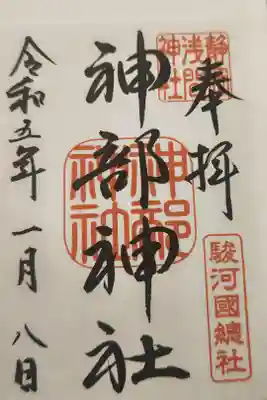 奉拝
静岡
浅間
神社
駿河國總社
神部神社
神部
神社
令和五年一月八日